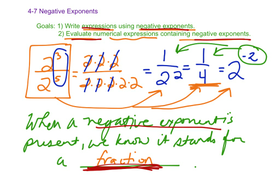 4-7 Negative Exponents
Goals: 1) Write expressions using negative exponents.
2) Evaluate numerical expressions containing negative exponents.
2³/2⁵ = 2·2·2/2·2·2·2·2 = 1/2² = 1/4 = 2⁻²
When a negative exponent is
present, we know it stands for
a fraction